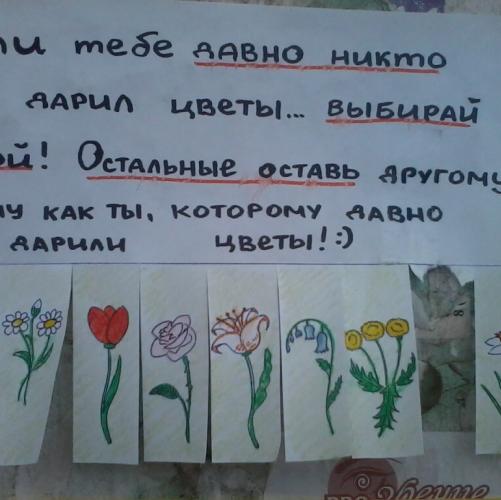 ли тебе давно никто
дарил цветы... выбирай
ой! Остальные оставь другому
му как ты, которому давно
дарили цветы! :)